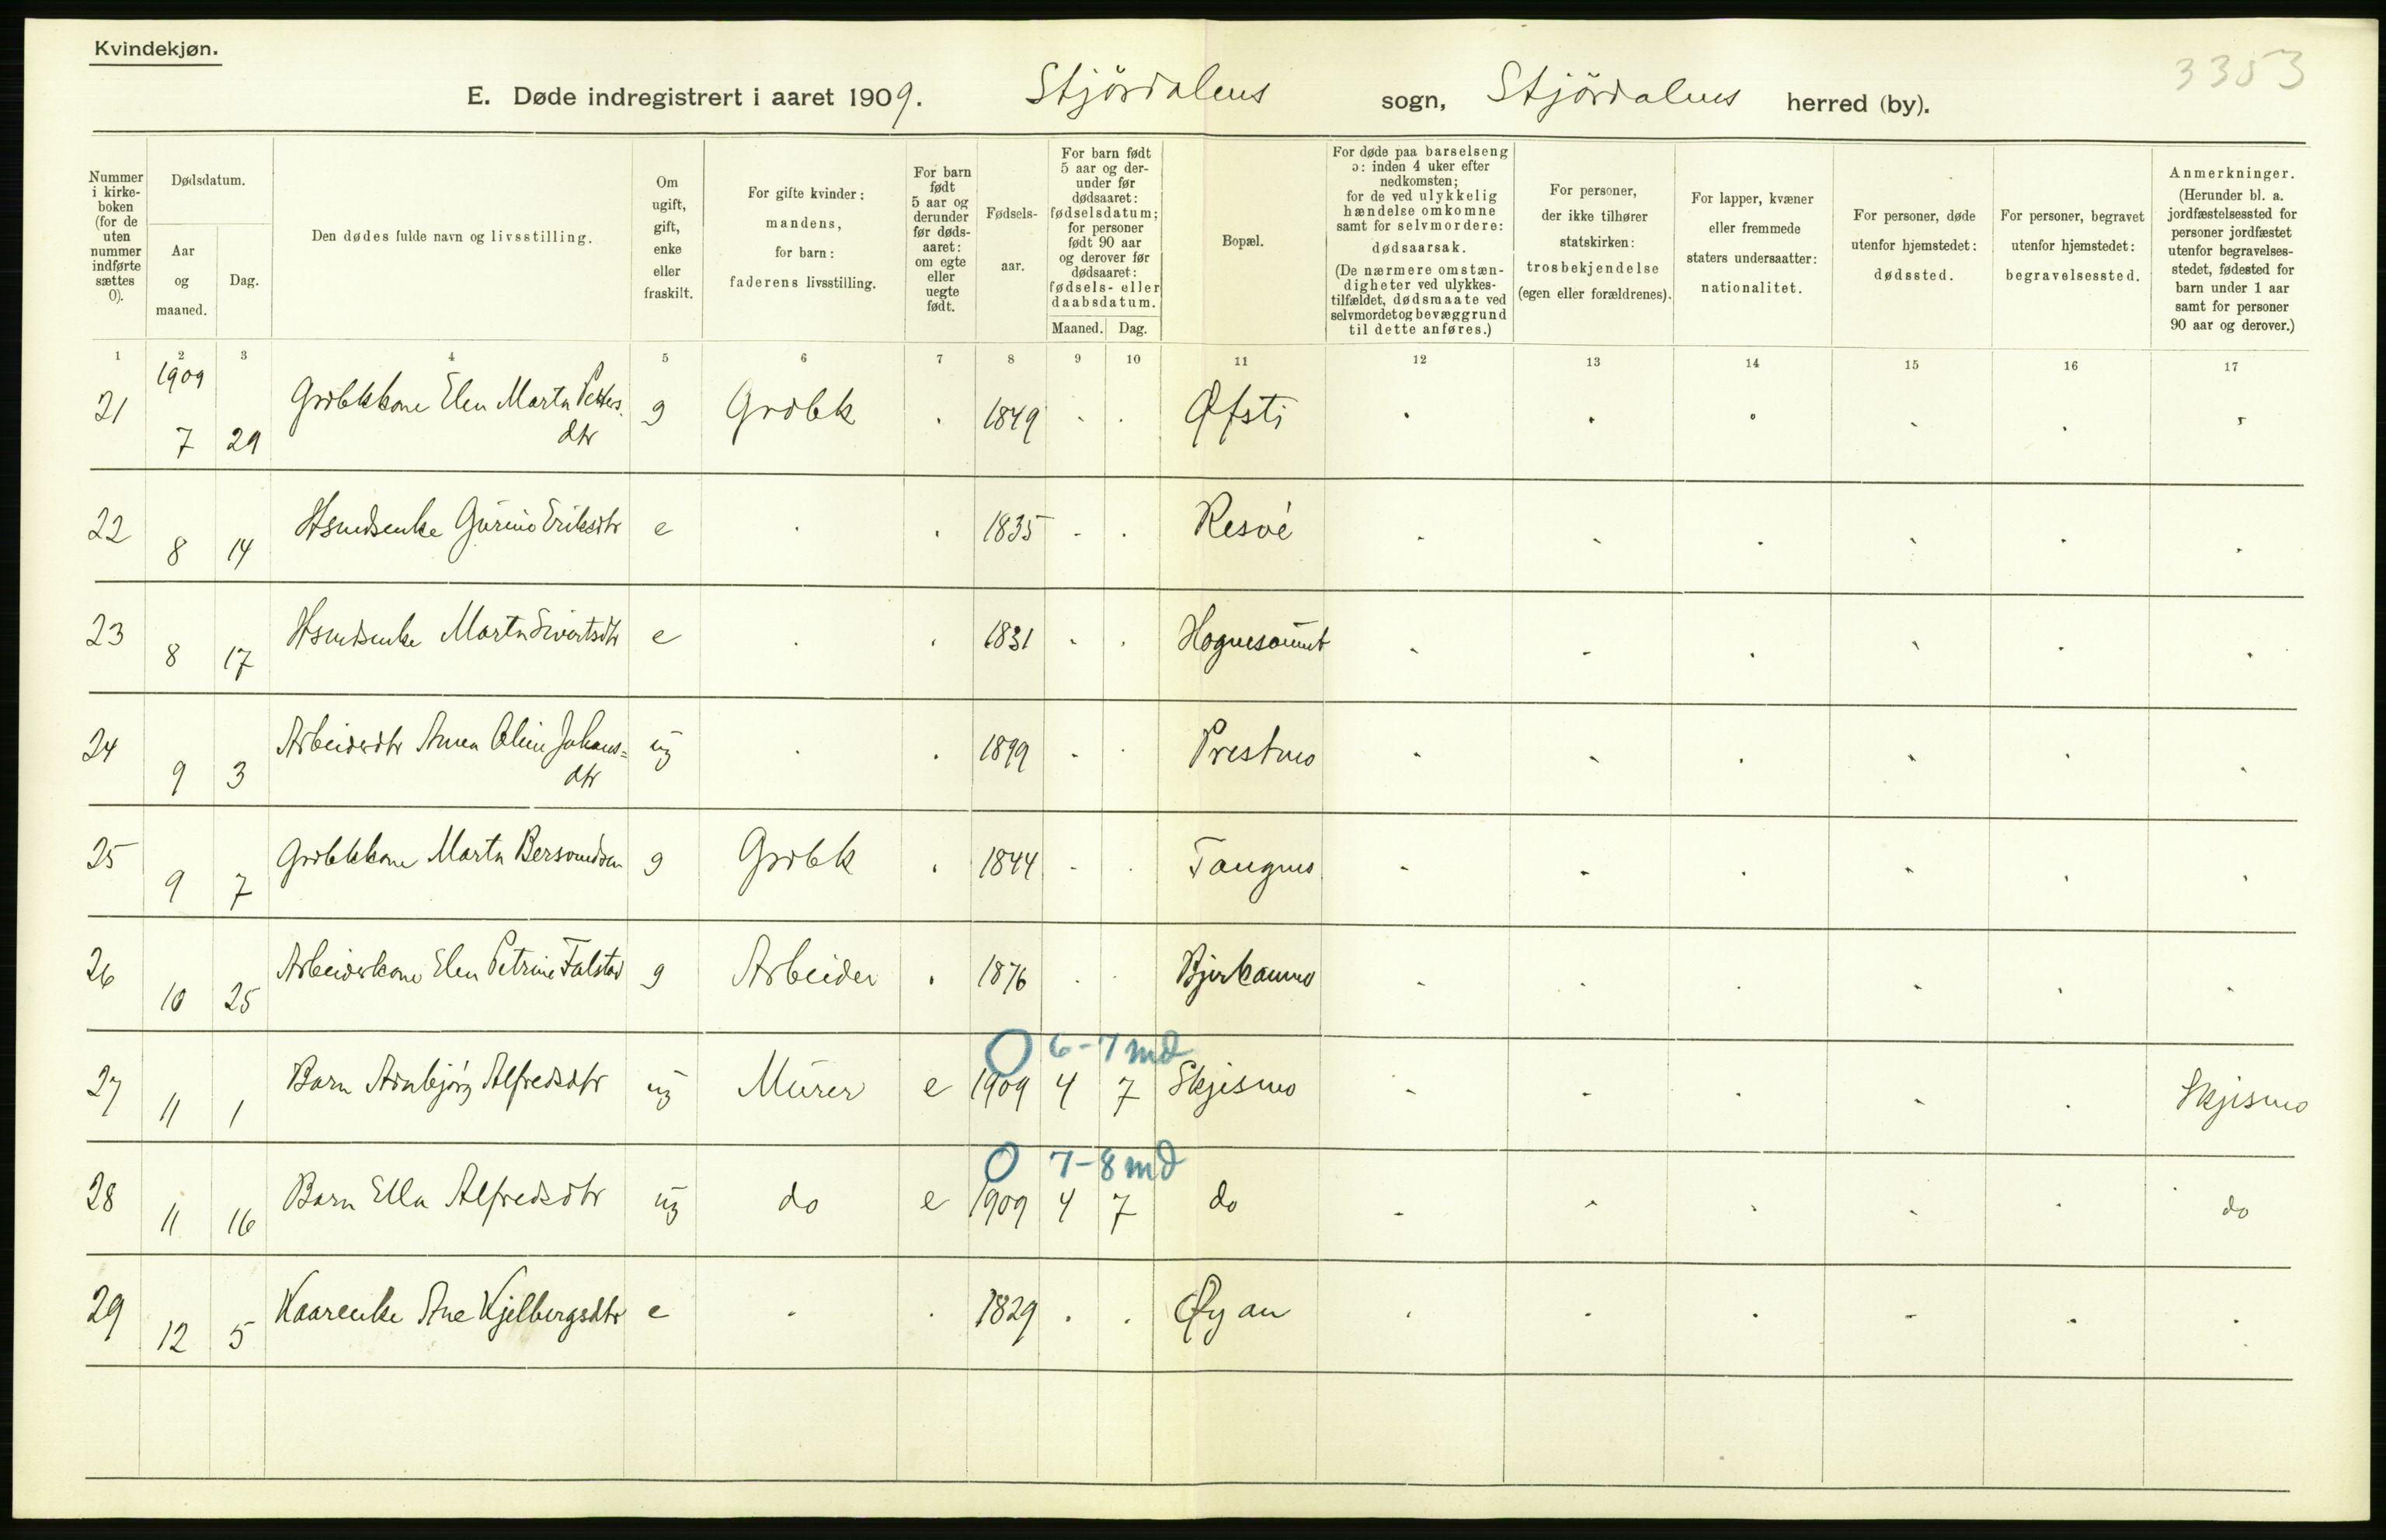 Kvindekjøn.
3353
E. Døde indregistrert i aaret 1909. Stjördalens sogn, Stjördalens herred (by).
Nummer i kirke-boken (for de uten nummer indførte sættes 0).
Dødsdatum.
Aar og maaned.
Dag.
Den dødes fulde navn og livsstilling.
Om ugift, gift, enke eller fraskilt.
For gifte kvinder: mandens, for barn: faderens livsstilling.
For barn født 5 aar og derunder før døds-aaret: om egte eller uegte født.
Fødsels-aar.
For barn født 5 aar og der-under før dødsaaret: fødselsdatum; for personer født 90 aar og derover før dødsaaret: fødsels- eller daabsdatum.
Maaned. Dag.
Bopæl.
For døde paa barselseng ɔ: inden 4 uker efter nedkomsten; for de ved ulykkelig hændelse omkomne samt for selvmordere: dødsaarsak. (De nærmere omstæn-digheter ved ulykkes-tilfældet, dødsmaate ved selvmordet og bevæggrund til dette anføres.)
For personer, der ikke tilhører statskirken: trosbekjendelse (egen eller forældrenes).
For lapper, kvæner eller fremmede staters undersaatter: nationalitet.
For personer, døde utenfor hjemstedet: dødssted.
For personer, begravet utenfor hjemstedet: begravelsessted.
Anmerkninger. (Herunder bl. a. jordfæstelsessted for personer jordfæstet utenfor begravelses-stedet, fødested for barn under 1 aar samt for personer 90 aar og derover.)
1 2 3 4 5 6 7 8 9 10 11 12 13 14 15 16 17
1909
21 7 29 Grdbkkone Elen Marta Petters. dtr g Grdbk 1849 Øfsti
22 8 14 Hsmdsenke Gurine Eriksdtr e 1835 Resve
23 8 17 Hsmdsenke Marta Sivertsdtr e 1831
24 9 3 Arbeiderdtr Anna Oline Johans= dtr ug 1899 Prestmo
25 9 7 Grdbkkone Marta Bersvendsen g Grdbk 1844 Tangmo
26 10 25 Arbeiderkone Elen Petrine Falstad g Arbeider 1876 Bjerkanmo
0 6-7 md
27 11 1 Barn Arnbjörg Alfredsdtr ug Murer e 1909 4 7 Skjismo Skjismo
0 7-8 md
28 11 16 Barn Ella Alfredsdtr ug do e 1909 4 7 do do
29 12 5 Kaarenke Ane Kjelbergsdtr e 1829 Øyan